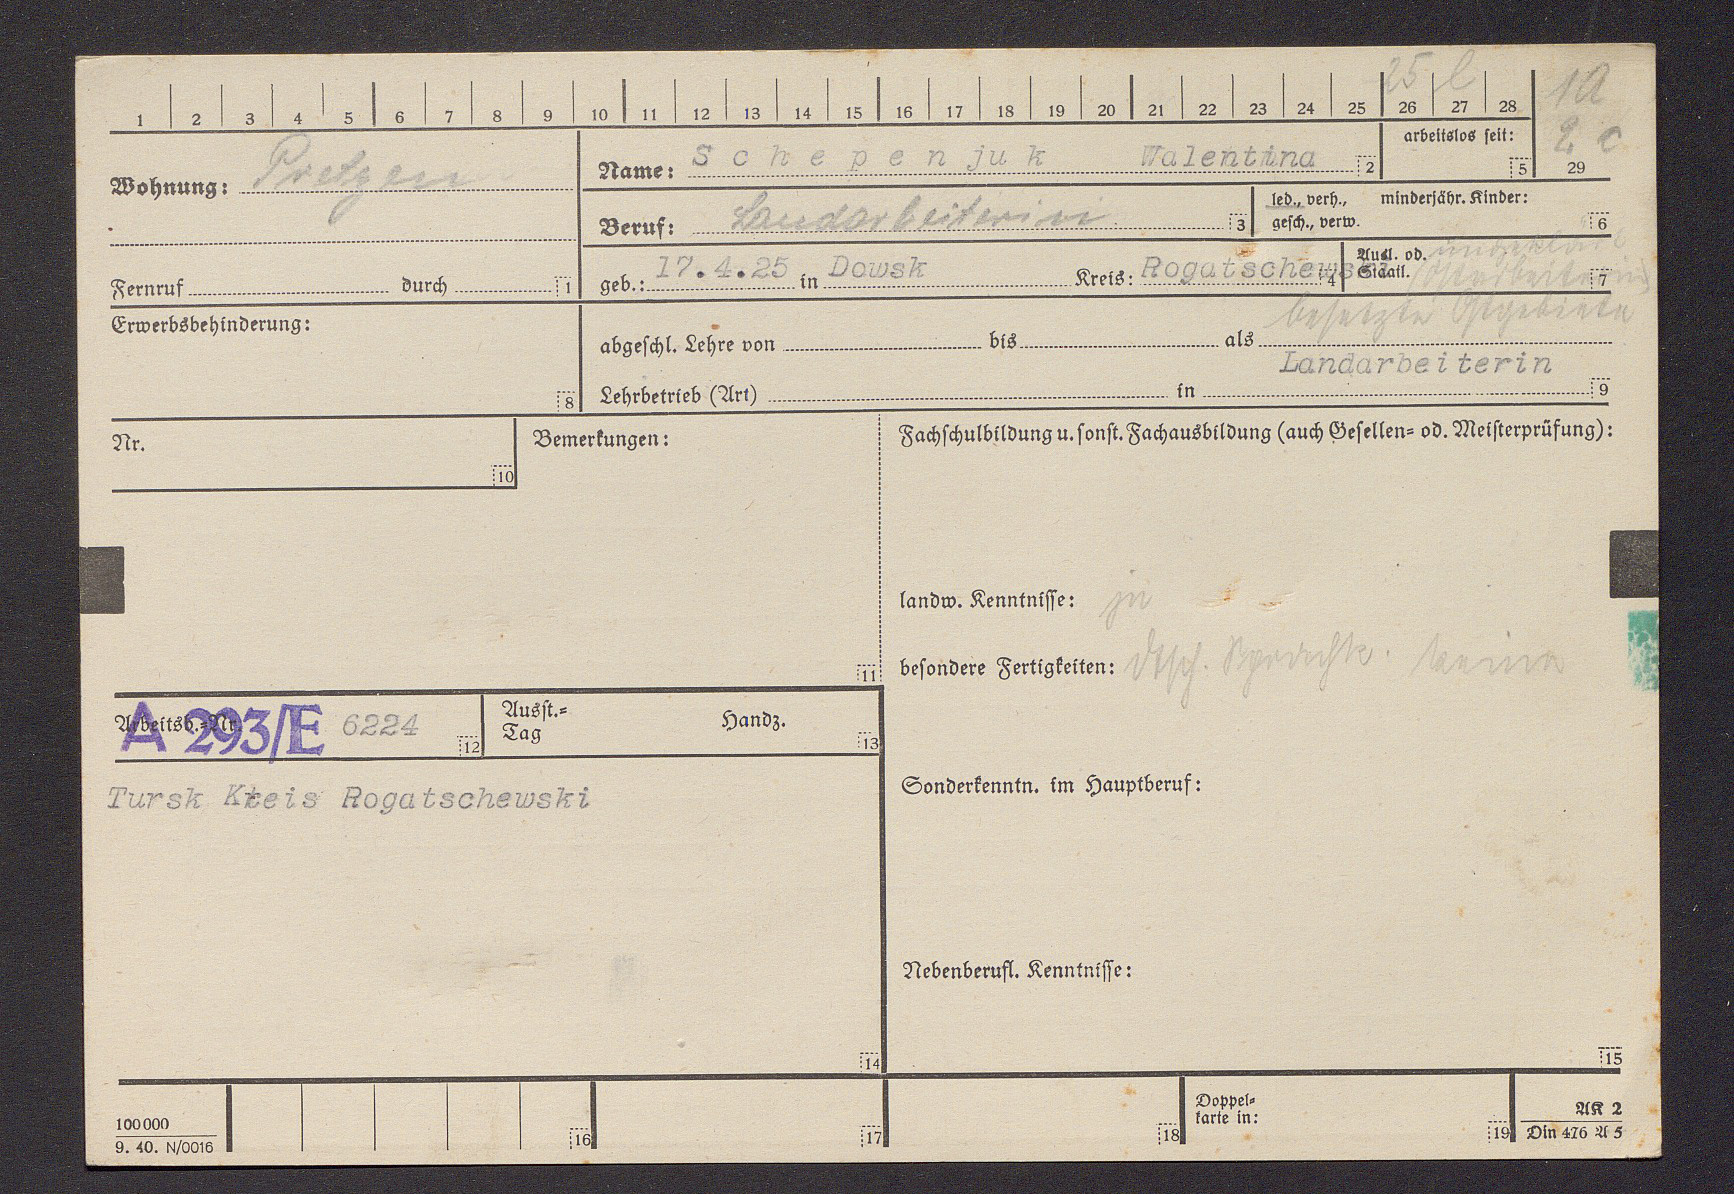 25 l
1a
1 2 3 4 5 6 7 8 9 10 11 12 13 14 15 16 17 18 19 20 21 22 23 24 25 26 27 28
2 c
29
Wohnung: Pretzen
Name: Schepenjuk Walentina 2
arbeitslos seit: 5
Beruf: Landarbeiterin 3
led., verh., gesch., verw.
minderjähr. Kinder: 6
Fernruf durch 1
geb.: 17.4.25 in Dowsk Kreis: Rogatschewski 4
Ausl. od. Staatl. ungeklärt Ostarbeiterin 7
besetzte Ostgebiete
Erwerbsbehinderung: 8
abgeschl. Lehre von bis als
Landarbeiterin
Lehrbetrieb (Art) in 9
Nr. 10
Bemerkungen: 11
Fachschulbildung u. sonst. Fachausbildung (auch Gesellen= od. Meisterprüfung):
landw. Kenntnisse: ja
besondere Fertigkeiten: dtsch. Sprachk. keine
Arbeitsb.=Nr. A 293/E 6224 12
Ausst.=
Tag
Handz. 13
Tursk Kreis Rogatschewski
Sonderkenntn. im Hauptberuf:
Nebenberufl. Kenntnisse:
14
15
100000
9. 40. N/0016
16
17
18
Doppel=
karte in: 19
AK 2
Din 476 A 5